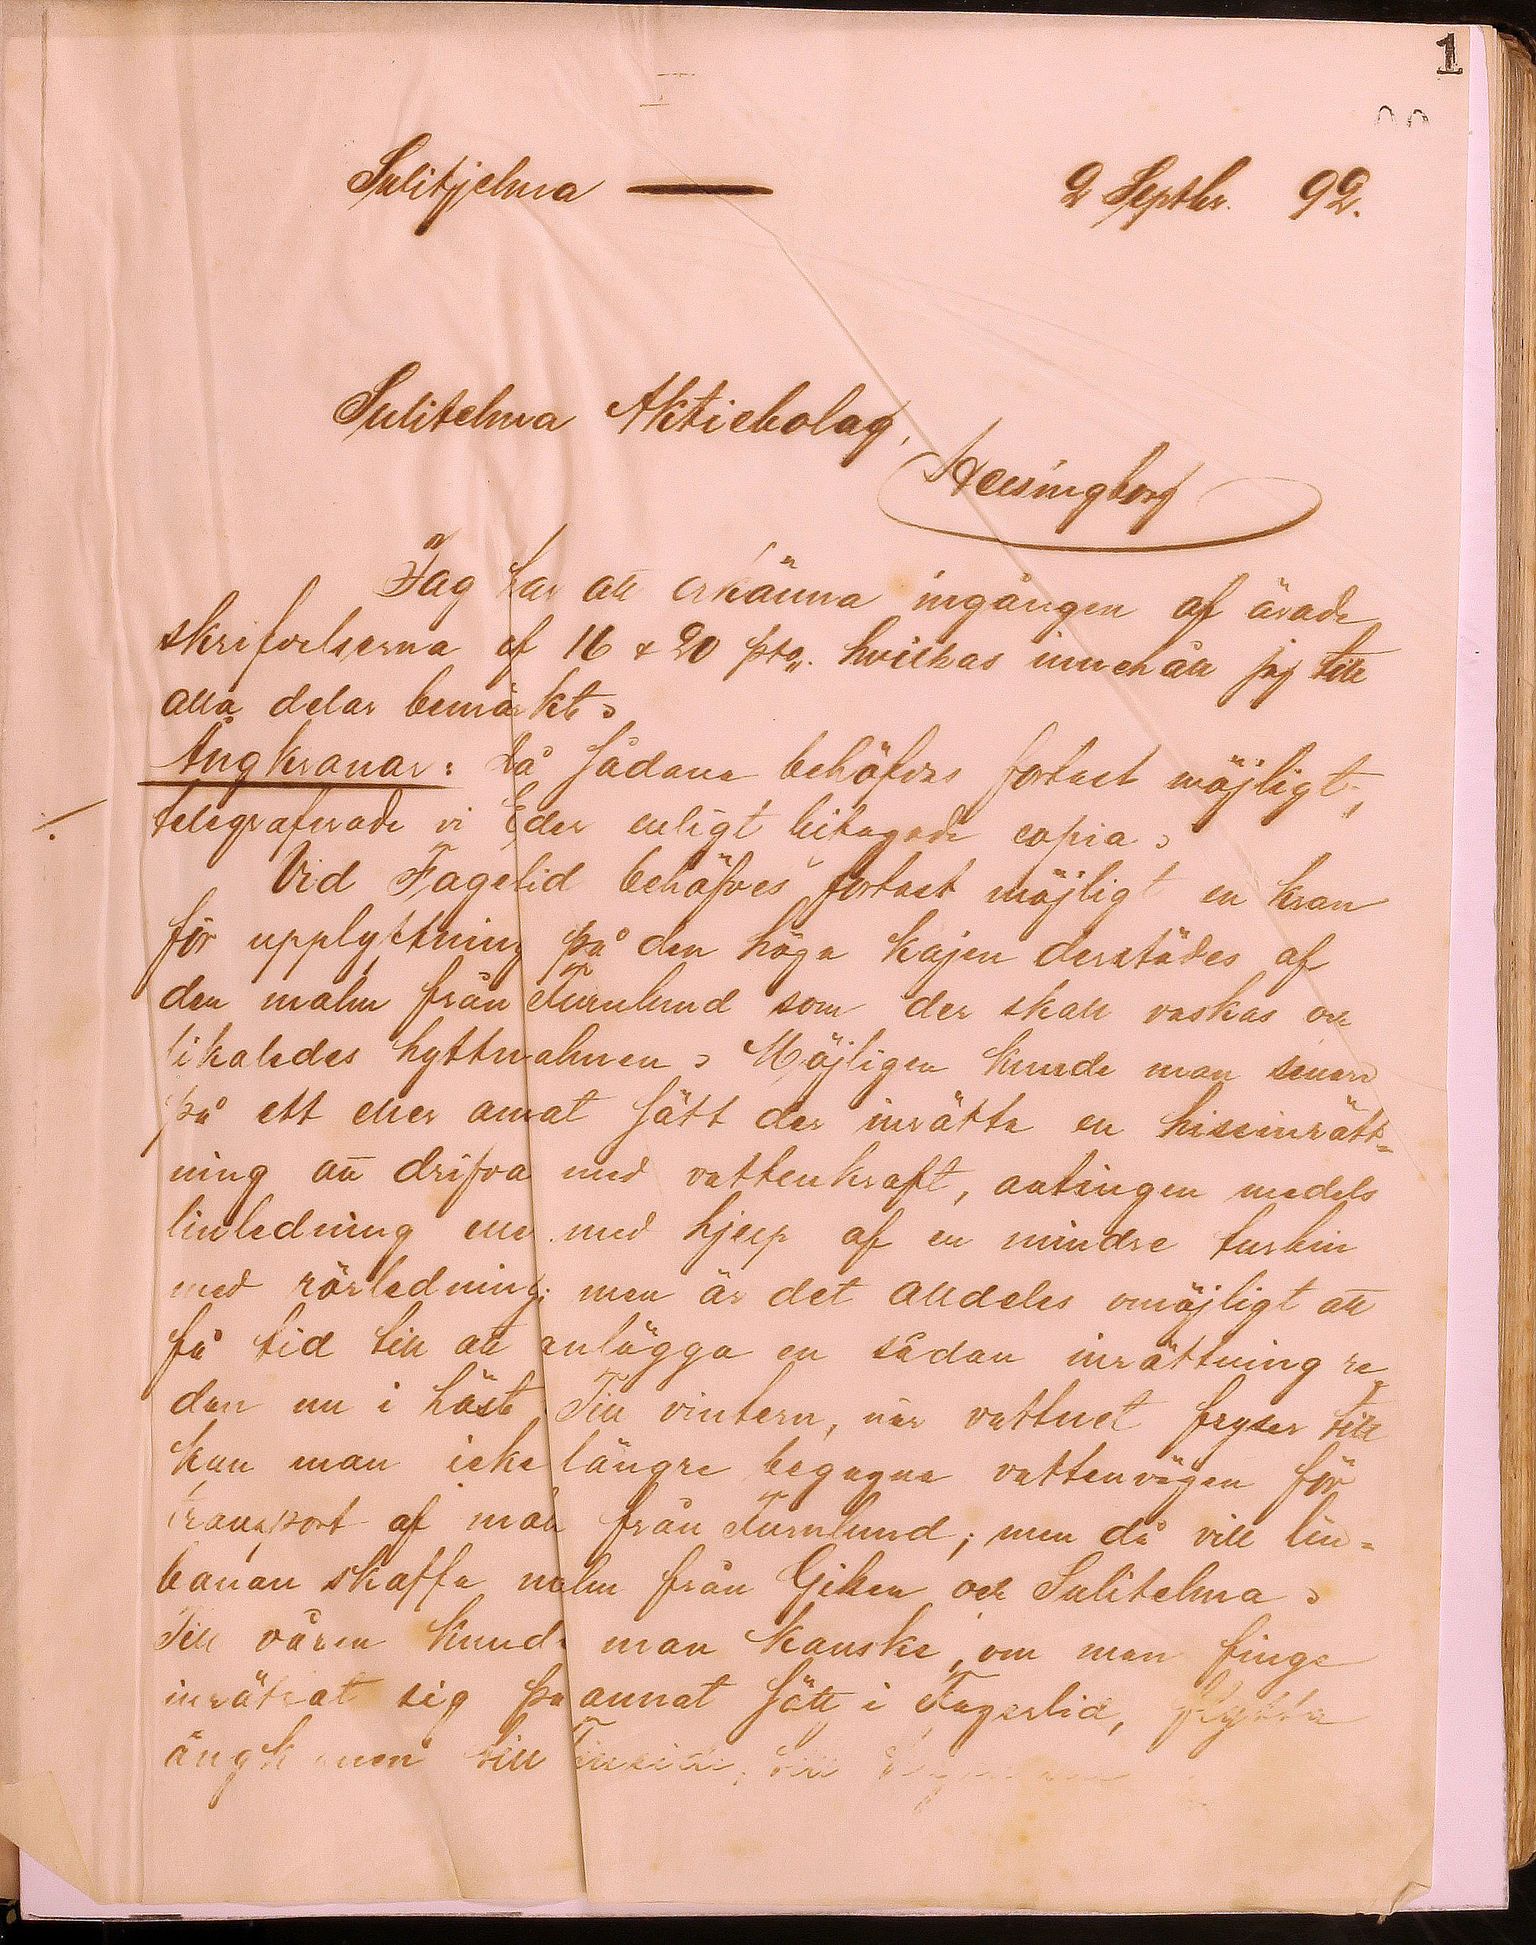 1
Sulitjelma — 2 Septbr. 92.
Sulitelma Aktiebolag,
Helsingborg
Jag har att erkänna ingången af ärade
skrifvelserna af 16 & 20 pto. hvilkas innehåll jag till
alla delar bemärkt.
Ångkranar: Då sådana behöfves fortast möjligt,
telegraferade vi Eder enligt bilagade copia.
Vid Fagerlid behöfves fortast möjligt en kran
för upplyftning på den höga kajen derstädes af
den malm från Furulund som der skall vaskas och
likaledes hyttmalmen. Möjligen kunde man senare
på ett eller annat sätt der inrätta en hissinrätt=
ning att drifva med vattenkraft, antingen medels
linledning eller med hjelp af en mindre turbin
med rörledning; men är det alldeles omöjligt att
få tid till att anlägga en sådan inrättning re=
dan nu i höst. Till vintern, när vattnet fryser till
kan man icke längre begagna vattenvägen för
transport af malm från Furulund; men då vill lin=
banan skaffa malm från Giken och Sulitelma.
Till våren kunde man kanske, om man finge
inrättat sig på annat sätt i Fagerlid, flytta
ångkranen till